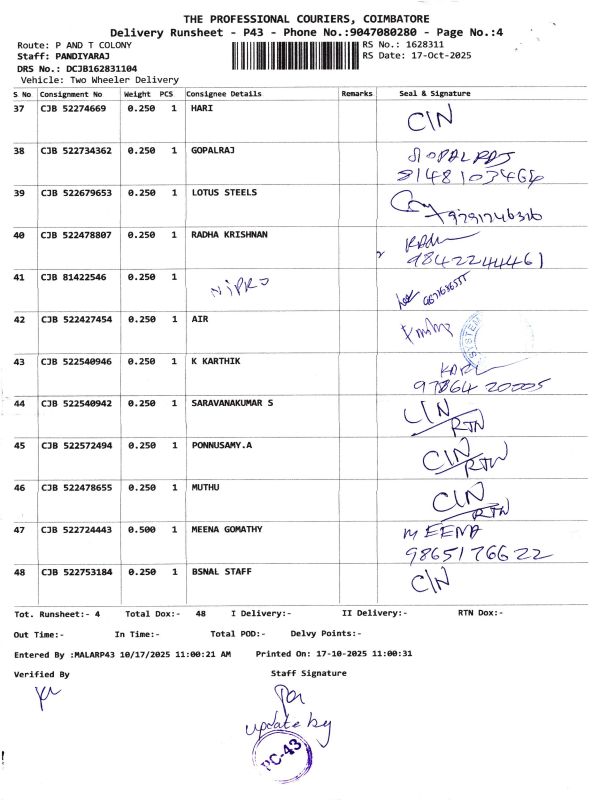 THE PROFESSIONAL COURIERS, COIMBATORE
Delivery Runsheet - P43 - Phone No.:9047080280 - Page No.:4
Route: P AND T COLONY RS No.: 1628311
Staff: PANDIYARAJ RS Date: 17-Oct-2025
DRS No.: DCJB162831104
Vehicle: Two Wheeler Delivery
S No Consignment No Weight PCS Consignee Details Remarks Seal & Signature
37 CJB 52274669 0.250 1 HARI C/N
38 CJB 522734362 0.250 1 GOPALRAJ GOPALRAJ
8148103464
39 CJB 522679653 0.250 1 LOTUS STEELS 9791746316
40 CJB 522478807 0.250 1 RADHA KRISHNAN
9842244461
41 CJB 81422546 0.250 1 NIPRO
42 CJB 522427454 0.250 1 AIR SYSTEM
43 CJB 522540946 0.250 1 K KARTHIK
44 CJB 522540942 0.250 1 SARAVANAKUMAR S C/N
RTN
45 CJB 522572494 0.250 1 PONNUSAMY.A C/N
RTN
46 CJB 522478655 0.250 1 MUTHU C/N
RTN
47 CJB 522724443 0.500 1 MEENA GOMATHY MEENA
9865176622
48 CJB 522753184 0.250 1 BSNAL STAFF C/N
Tot. Runsheet:- 4 Total Dox:- 48 I Delivery:- II Delivery:- RTN Dox:-
Out Time:- In Time:- Total POD:- Delvy Points:-
Entered By :MALARP43 10/17/2025 11:00:21 AM Printed On: 17-10-2025 11:00:31
Verified By Staff Signature
update by
PC-43